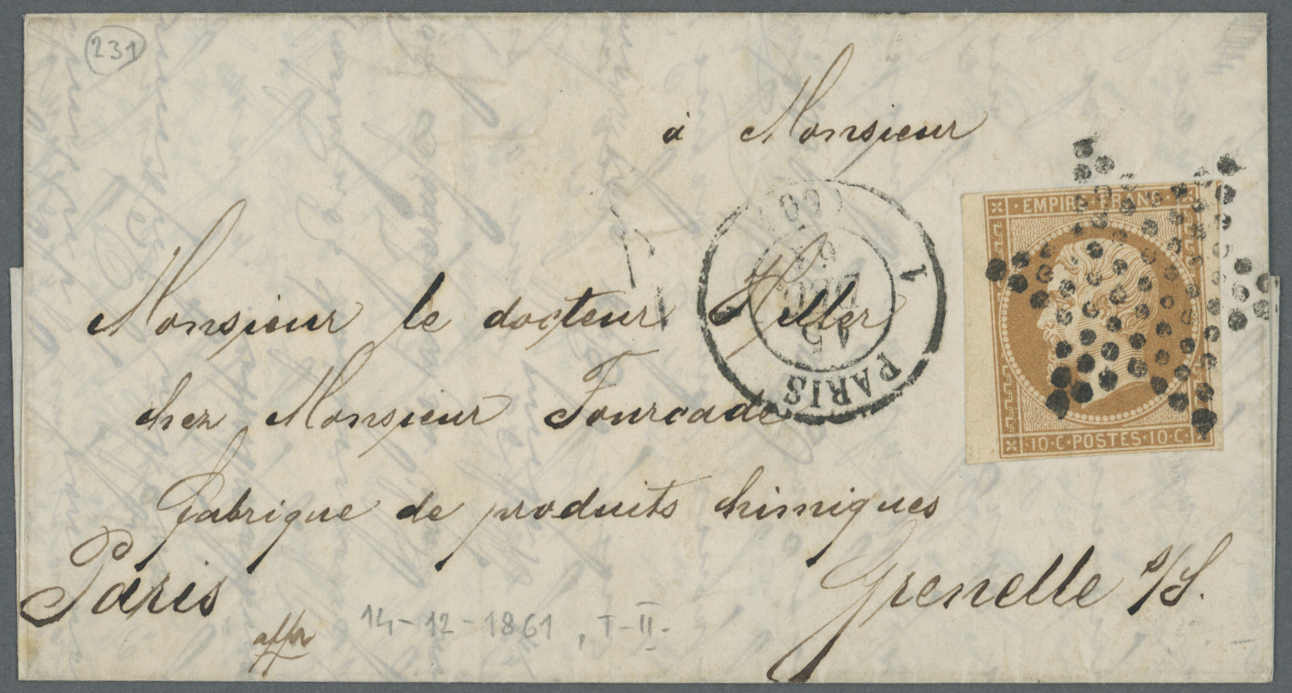 231
à Monsieur
Monsieur le docteur
chez Monsieur Fourcade
fabrique de produits chimiques
Grenelle s/S.
Paris
affr
14-12-1861, T-II-
PARIS
1
15
DEC
EMPIRE FRANC
10·C·POSTES·10·C·